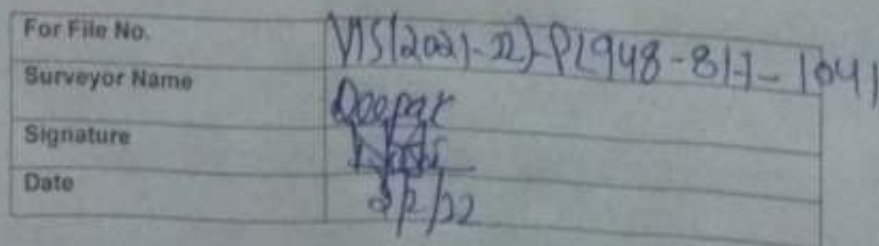 For File No. VIS(2021-22)-PL948-817-1041
Surveyor Name Deepak
Signature
Date 2/2/22